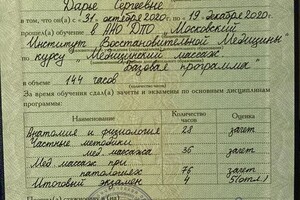 Дарье Сергеевне
в том, что он(а) с «31» октября 2020 г. по «19» декабря 2020 г.
прошел(а) обучение в АНО ДПО „Московский
Институт Восстановительной Медицины"
по курсу „Медицинский массаж.
Базовая программа"
в объеме 144 часов
(количество часов)
За время обучения сдал(а) зачеты и экзамены по основным дисциплинам
программы:
Наименование Количество часов Оценка
Анатомия и физиология 28 зачет
Частные методики
мед. массажа 36 зачет
Мед. массаж при
патологиях 76 зачет
Итоговый экзамен 4 5(отл.)